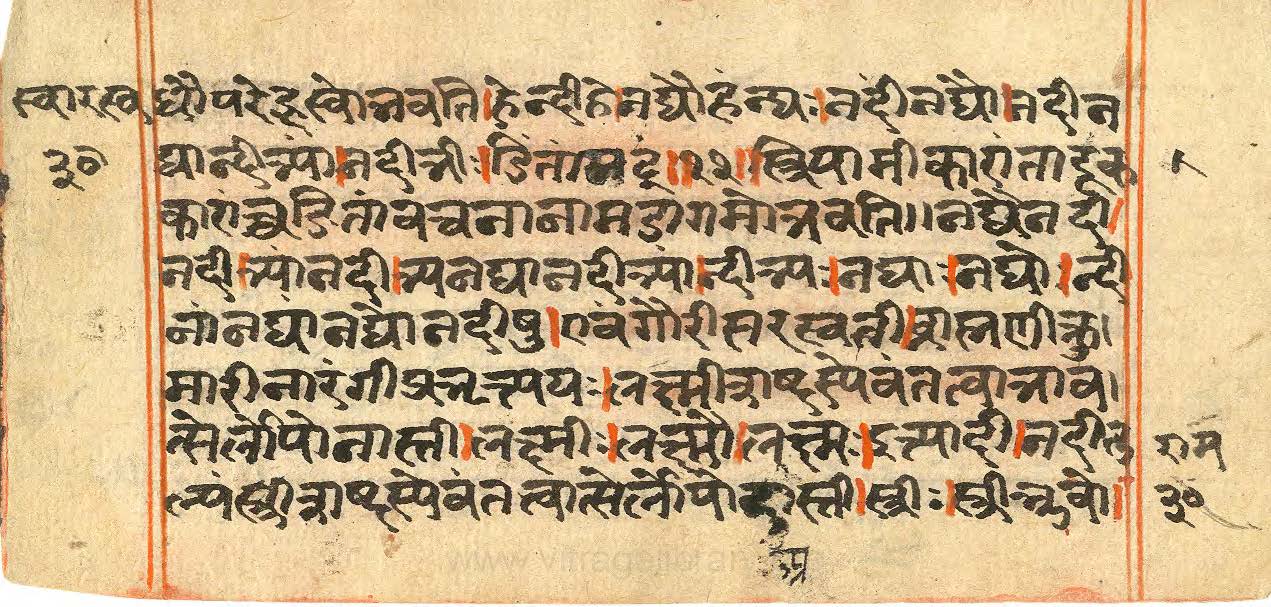 स्वारस्व धौ परे ह्रस्वो भवति । हे नदि हे नद्यौ हे नद्यः । नदीं नद्यौ । नदीन
३० द्या नदीभ्यां नदीभिः । ङितामट् ॥ २२ ॥ स्त्रियामीकारांतादूका
कारांच्च ङितां वचनानामडागमो भवति ॥ नद्यै नदी
नदीभ्यां नदीभ्य नद्याः नदीभ्यां नदीभ्यः । नद्याः । नद्योः । नदी
नां नद्यां नद्योः नदीषु । एवं गौरी सरस्वती ब्राह्मणी कु
मारी नारंगी प्रभृतयः । लक्ष्मीशब्दस्येवंतत्वाभावा
त्सेर्लोपो नास्ति । लक्ष्मीः । लक्ष्म्यौ । लक्ष्म्यः । इत्यादी । नदीतु
राम
ल्यं स्त्रीशब्दस्येवंतत्वात्सेर्लोपो स्ति । स्त्री
३०
www.vitragelibrary